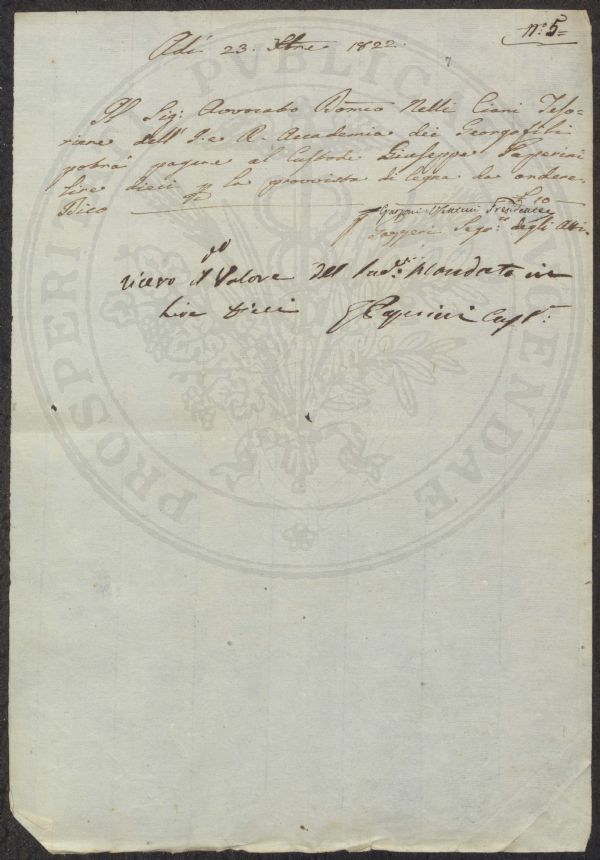 nº: 5=
Adì 23. Xbre 1822.
Il Sig: Avvocato Romeo Nelli Ciani Teso-
riere dell' I. e R. Accademia dei Georgofili
potrà pagare al Custode Giuseppe Paperini
Lire dieci p la provvista di legna da ardere.
Dico £ 10
Presidente
Seg:º degli Atti
io
ricevo il Valore del Sud:º Mandato in
Lire dieci G Paperini Cust:
PROSPERITATI PUBLICAE AUGENDAE